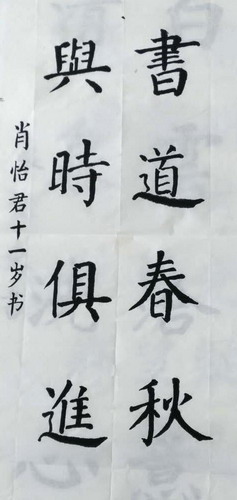 書道春秋
與時俱進
肖怡君十一岁书